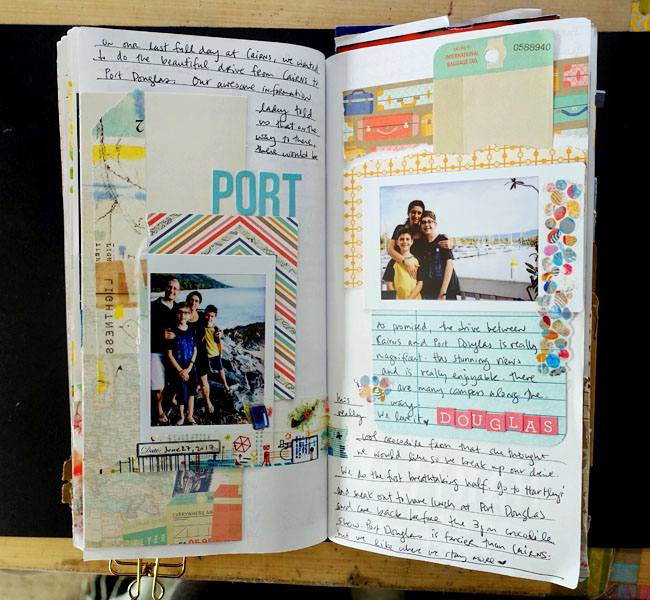 On our last full day at Cairns, we wanted
to do the beautiful drive from Cairns to
Port Douglas. Our awesome information
lady told
us that on the
way to there,
there would be
PORT
LIGHTNESS
Date: June 27, 2017
EVERYWHERE
INTERNATIONAL
BAGGAGE TAG
0588940
As promised, the drive between
Cairns and Port Douglas is really
magnificent. Has stunning views
and is really enjoyable. There
are many campers along the
way.
We love it
DOUGLAS
but
really
cool crocodile farm that one thought
we would like so we break up our drive.
We do the first breathtaking half. Go to Hartley's
and sneak out to have lunch at Port Douglas
and come back before the 3pm crocodile
show. Port Douglas is fancier than Cairns.
but we like where we stay more